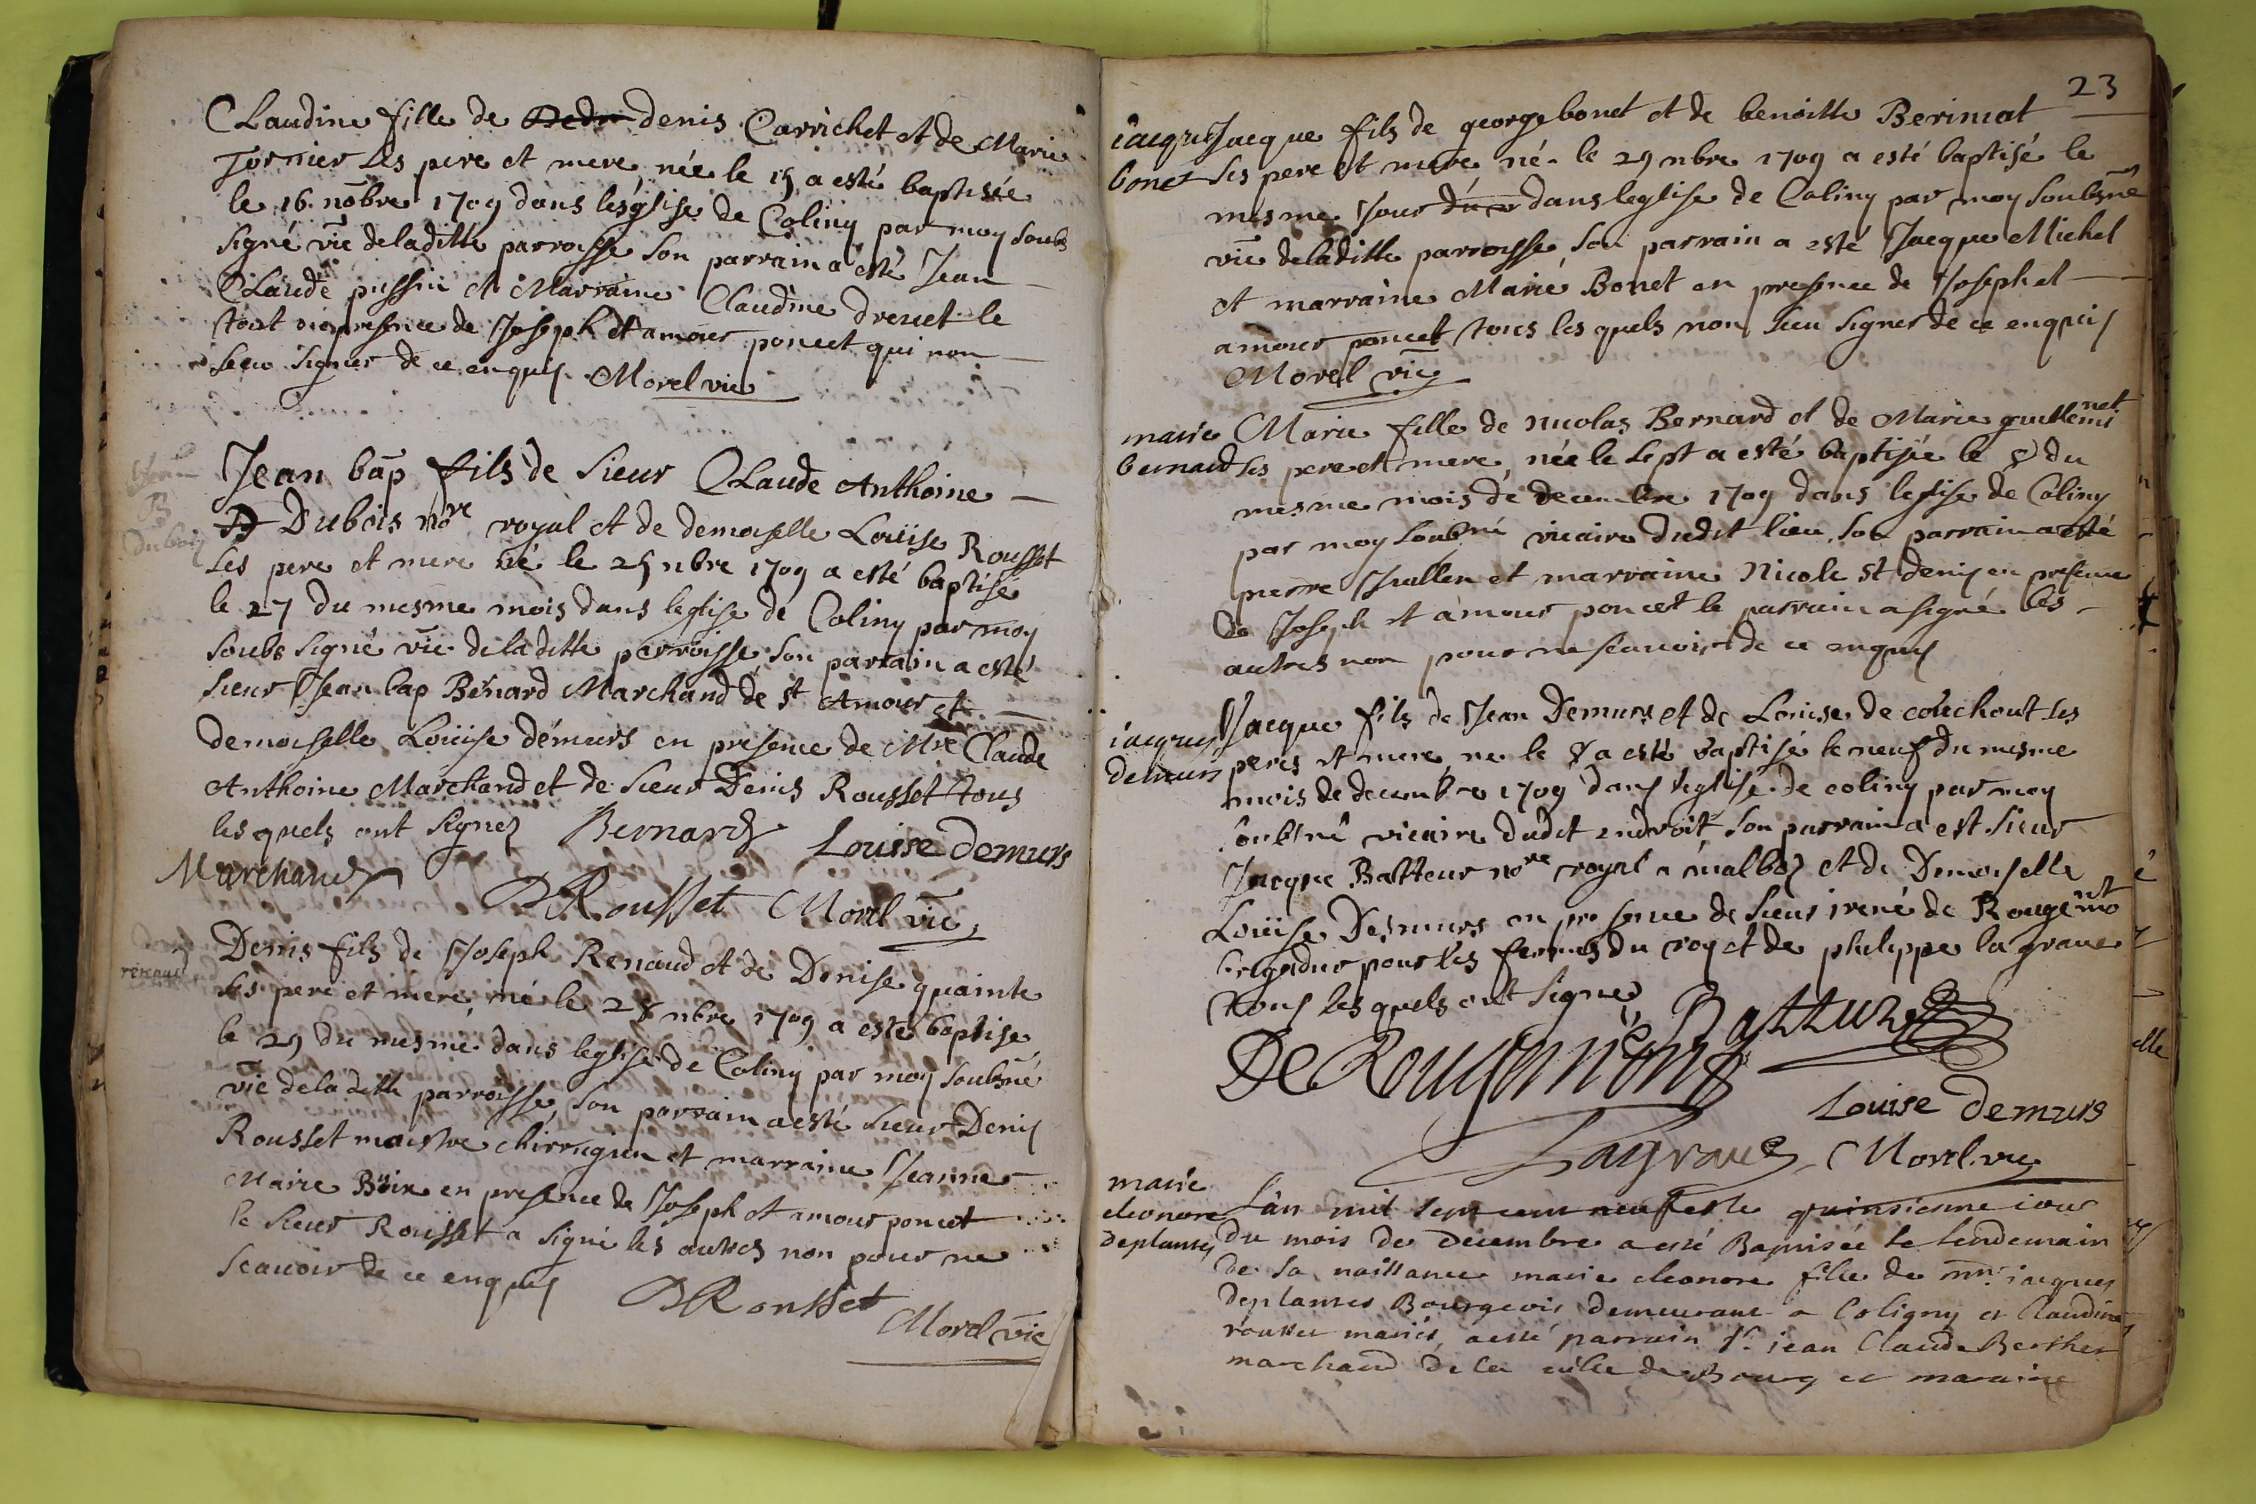 CLaudine fille de denis Carrichet et de Marie
Tornier ses pere et mere née le 15 a esté baptisée
le 16 nobre 1709 dans lesglise de Coliny par moy soubs
signé vic̄ de laditte parroisse son parrain a esté Jean
CLaude pussin et Marraine Claudine drevet le
tout en presence de Joseph et amour poncet qui non
sceu signer de ce enquis Morel vic
Jean bap fils de sieur CLaude Anthoine
Dubois nore royal et de demoiselle Loüise Rousset
ses pere et mere né le 25 nbre 1709 a esté baptisé
le 27 du mesme mois dans leglise de Coliny par moy
soubs signé vic̄ de laditte parroisse, son parrain a esté
sieur Jean bap Bernard Marchand de st Amour et
demoiselle Loüise demeurs en presence de Mre Claude
Anthoine Marchand et de sieur Denis Rousset tous
lesquels ont signez Bernard Louise demurs
Marchand
DRousset Morel vic̄
renaud
Denis fils de Joseph Renaud et de Denise quainte
ses pere et mere, né le 28 nbre 1709 a esté baptisé
le 29 du mesme dans leglise de Coliny par moy soubsné
vic̄ de laditte parroisse, son parrain a esté sieur Denis
Rousset maistre chirrugien et marraine Jeanne
Marie en presence de Joseph et amour poncet
le sieur Rousset a signé les autres non pour ne
scauoir de ce enquis DRousset
Morel vic̄
23
iacques Jacque fils de george bonet et de benoitte Berimat
bonet ses pere et mere né le 29 nbre 1709 a esté baptisé le
mesme Jour dans leglise de Coliny par moy soubsné
vic̄ de laditte parroisse, son parrain a esté Jacque Michel
et marraine Marie Bonet en presence de Joseph et
amour poncet tous les quels non sceu signer de ce enquis
Morel vic̄
marie Marie fille de nicolas Bernard et de Marie guillemi net
bernard ses pere et mere, née le sept a esté baptisée le 8 du
mesme mois de decembre 1709 dans leglise de Coliny
par moy soubsné vicaire dudit lieu, son parrain a esté
pierre Juillen et marraine Nicole st denis en presence
de Joseph et amour poncet le parrain a signé les
autres non pour ne scauoir de ce enquis
iacques Jacque fils de Jean Demurs et de Louise de couchout ses
demurs peres et mere, né le 8 a esté baptisé le neuf du mesme
mois de decembre 1709 dans leglise de coliny par moy
soubsné vicaire dudit endroit son parrain a est sieur
Jacque Batteur nore royal a malboz et de Demoiselle
Loüise Desmurs en presence de sieur irené de Rougemont
brigadier pour les fermes du roy et de philippe la graue
tous les quels ont signez
De Rougemont Battur
Louise demurs
Lagraue Morel vic
marie
eleonore L'an mil sept cent neuf et le quinsieme iour
deplantes du mois de Decembre a esté Baptisée le lendemain
de sa naissance marie eleonore fille de mr iacques
deplantes Bourgeois demeurant a Coligny et Claudine
rousset mariés, a esté parrain sr. iean Claude Berthet
marchand de la ville de Bourg et maraine